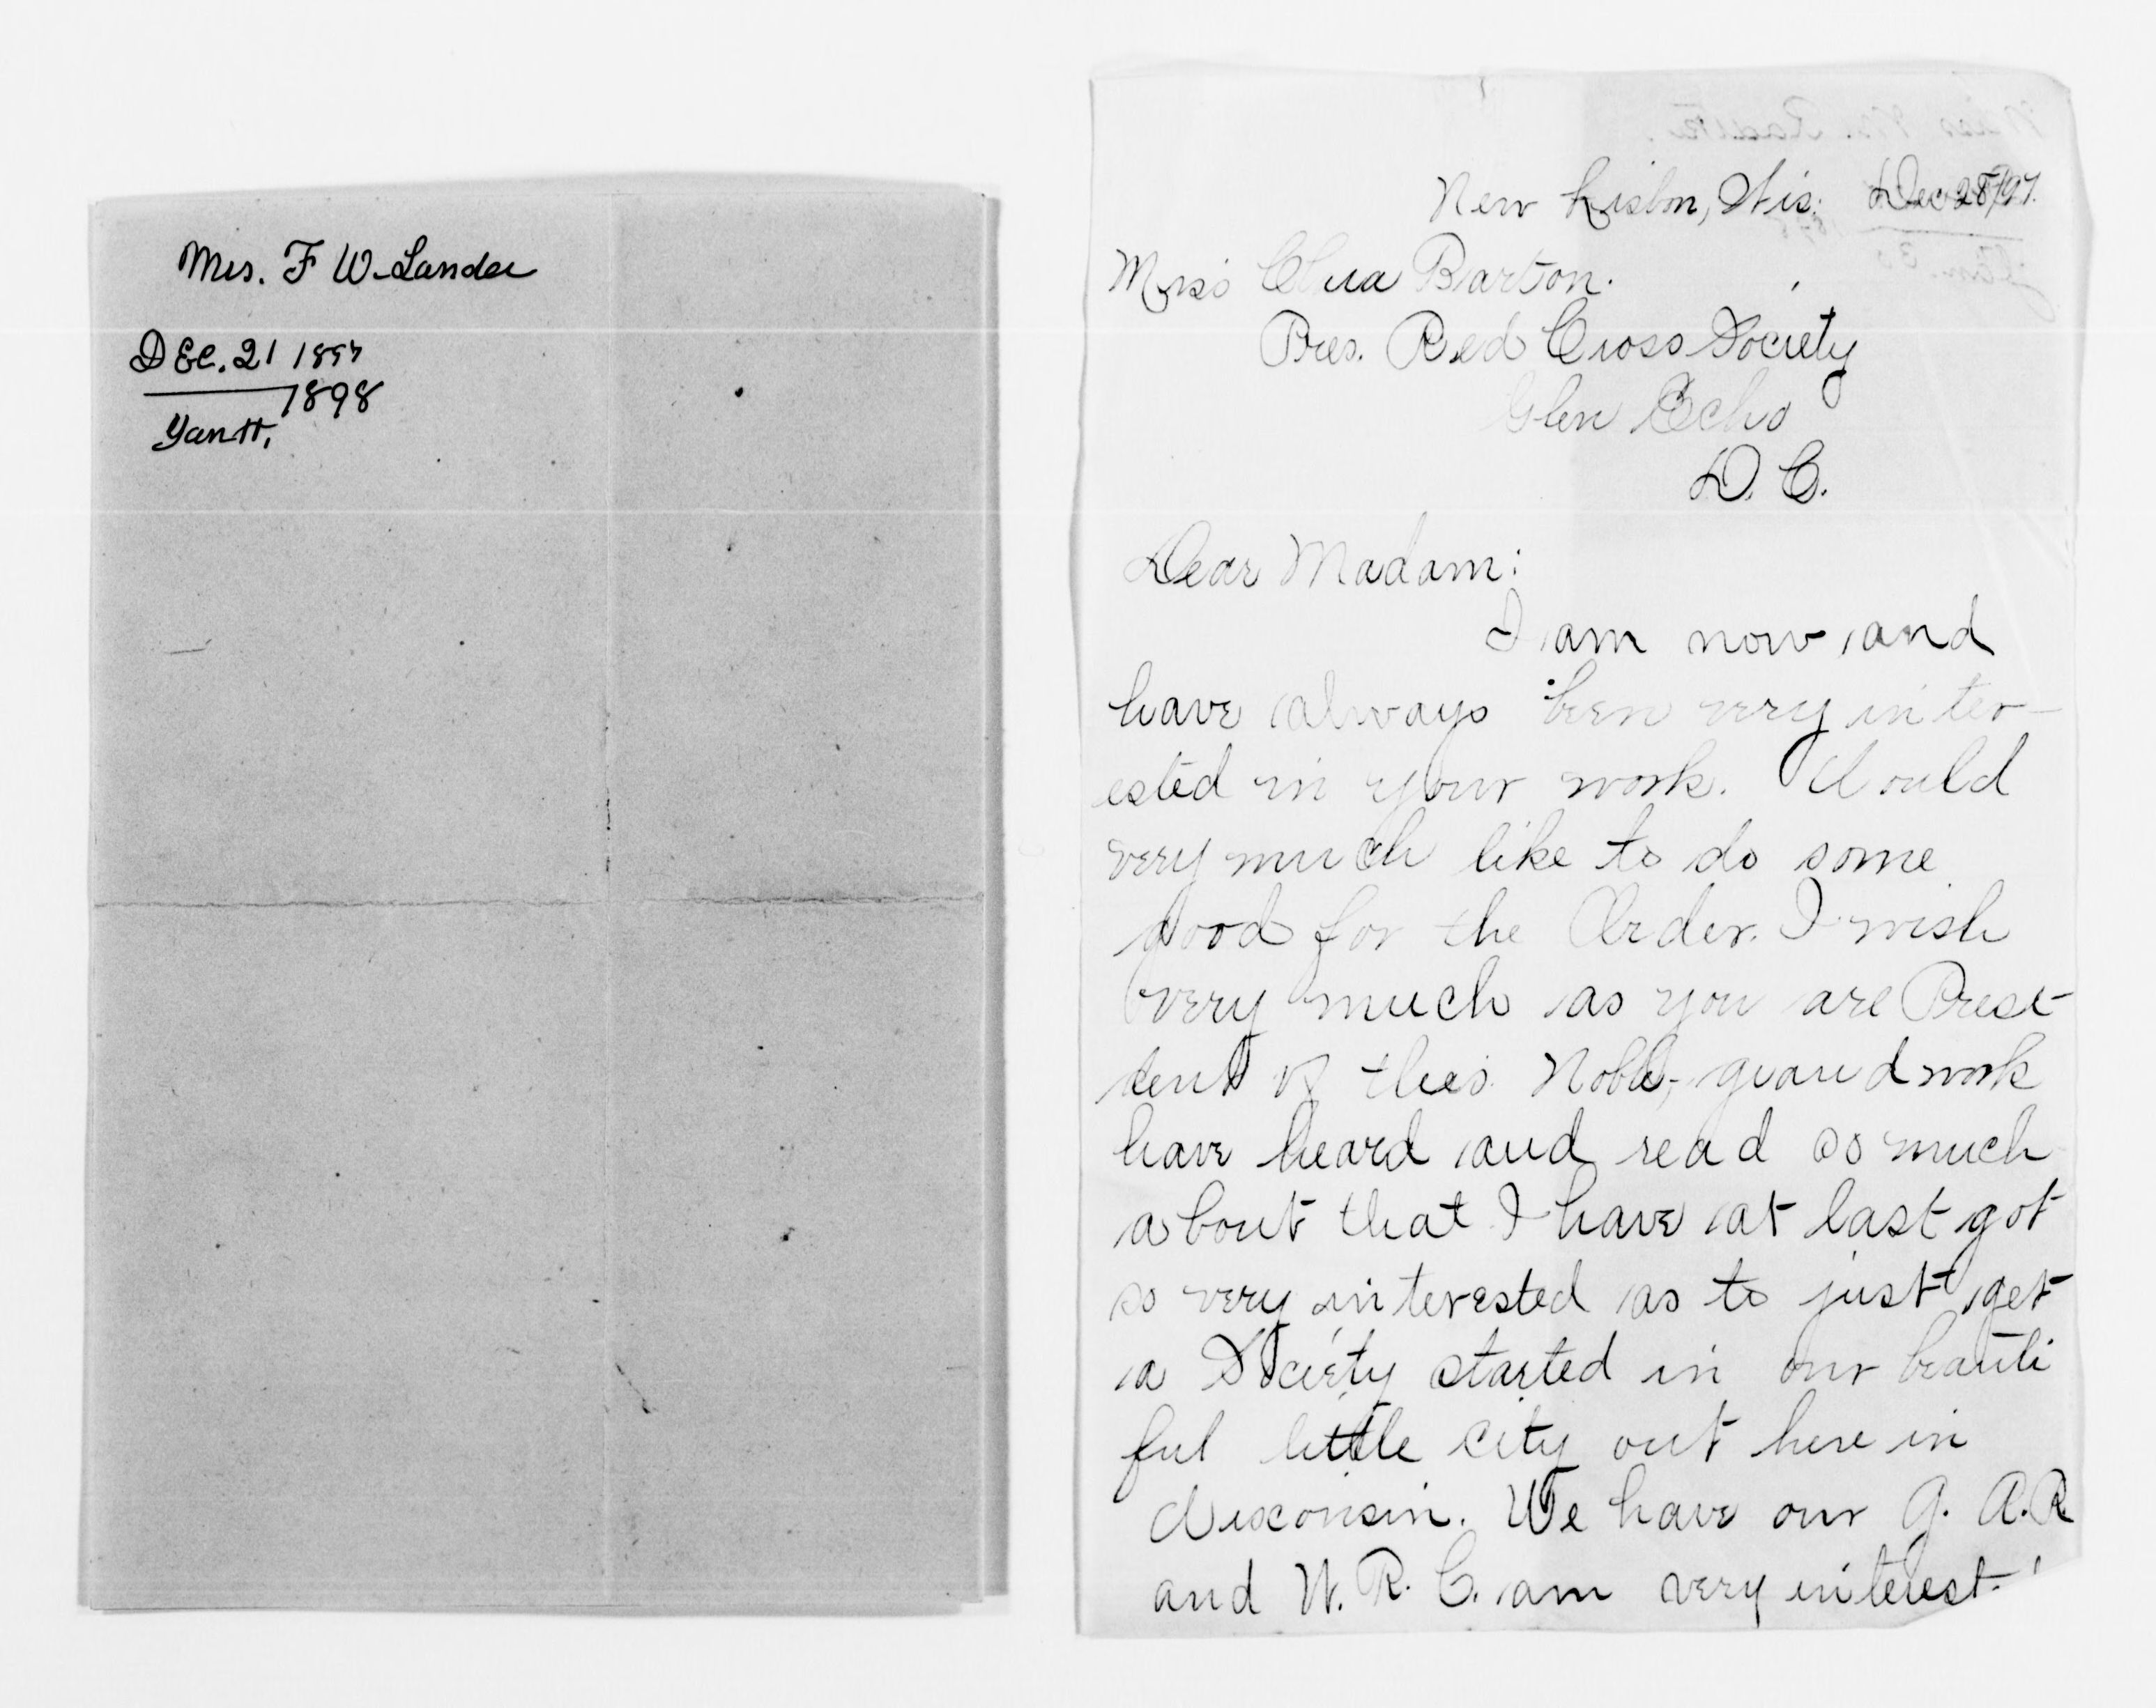 Mrs. F W Lander
DEC. 21 1897
1898
New Lisbon, Wis. Dec 28/97.
Miss Clara Barton.
Pres. Red Cross Society
Glen Echo
D. C.
Dear Madam:
I am now and
have always been very inter-
ested in your work. Would
very much like to do some
good for the Order. I wish
very much as you are Presi-
dent of this Noble, grand work
have heard and read so much
about that I have at last got
so very interested as to just get
a Society started in our beauti
ful little city out here in
Wisconsin. We have our G. A. R.
and W. R. C. am very interest-